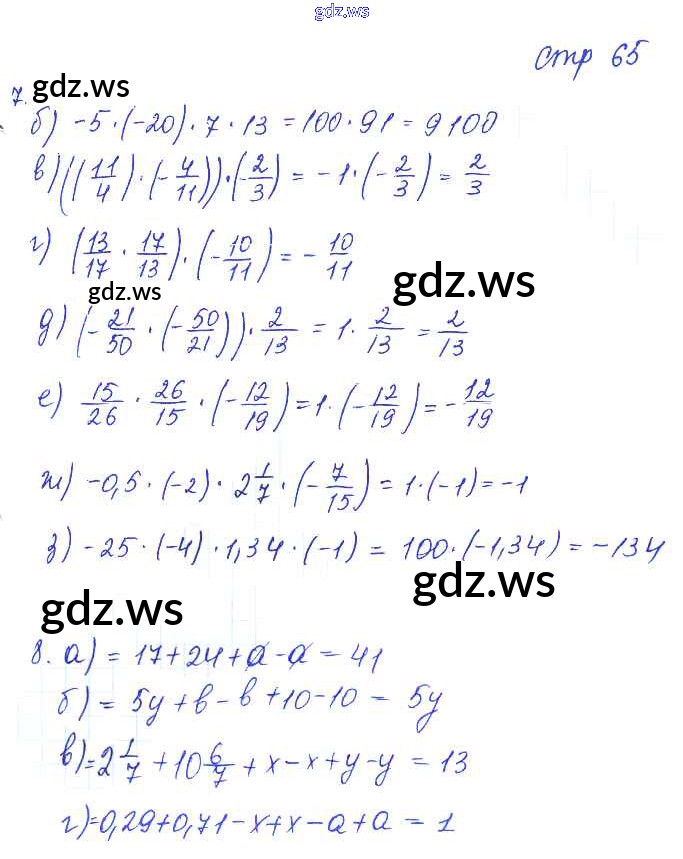 gdz.ws
стр 65
gdz.ws
7.
б) -5·(-20)·7·13 = 100·91 = 9100
в) ((11/4)·(-4/11))·(-2/3) = -1·(-2/3) = 2/3
г) (13/17 · 17/13)·(-10/11) = -10/11
gdz.ws
gdz.ws
д) (-21/50 · (-50/21))·2/13 = 1·2/13 = 2/13
е) 15/26 · 26/15 · (-12/19) = 1·(-12/19) = -12/19
ж) -0,5·(-2)·2 1/7·(-7/15) = 1·(-1) = -1
з) -25·(-4)·1,34·(-1) = 100·(-1,34) = -134
gdz.ws
gdz.ws
8. а) = 17+24+a-a = 41
б) = 5y+b-b+10-10 = 5y
в) = 2 1/7 + 10 6/7 + x-x+y-y = 13
г) = 0,29+0,71-x+x-a+a = 1